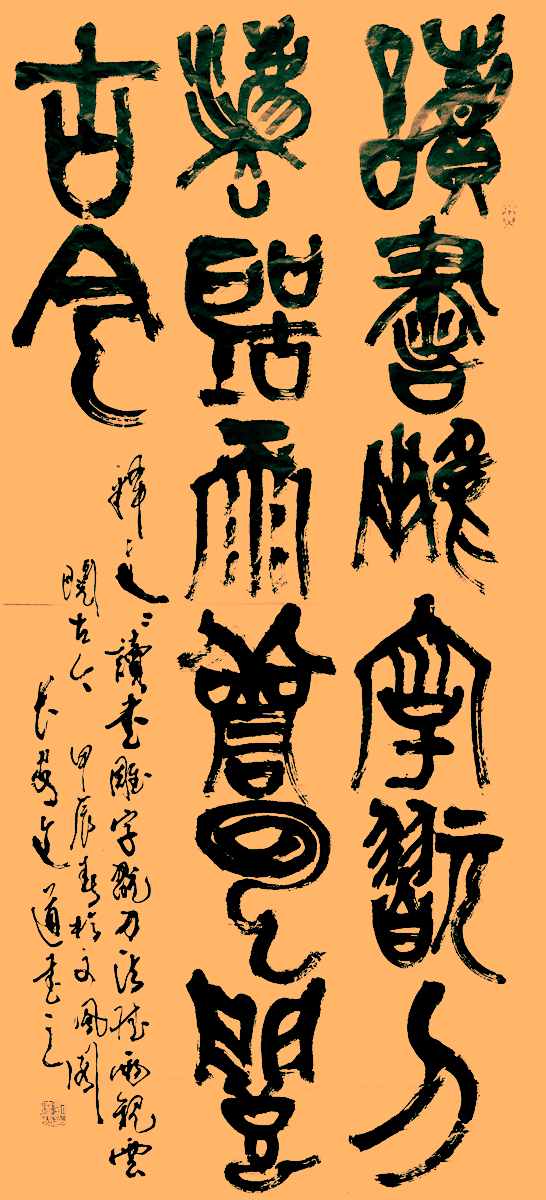 讀書雕字翫刀
法聽雨觀雲閱
古今
釋文讀書雕字翫刀法聽雨觀雲
閱古今 甲辰春於文風閣
長安 道書之